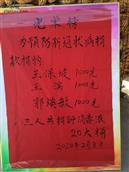 光荣榜
为预防新冠状病捐
款捐物:
王保坡 1000元
王滨 1000元
郭焕敏 1000元
三人共捐酚消毒液
20大桶
2020年2月8日